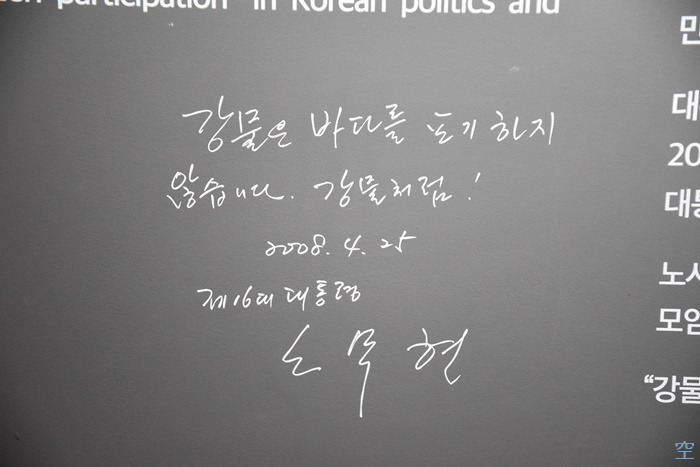 participation" in Korean politics and
강물은 바다를 포기하지
않습니다. 강물처럼!
2008. 4. 25
제16대 대통령
노무현
민
대
20
대통
노사
모임
"강물
空